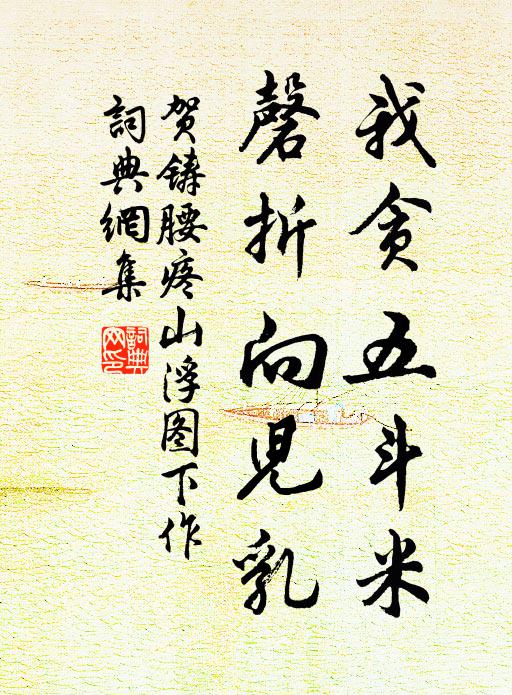 我贪五斗米
磬折向児乳
贺铸腰疼山浮图下作
詞典網集
詞典網印